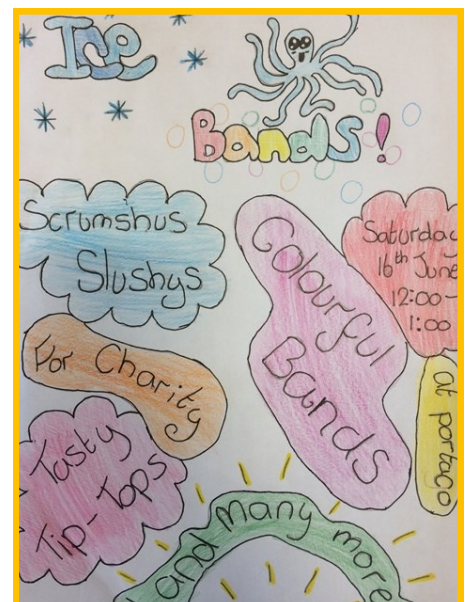 Ice
Bands!
Scrumshus
Slushys
Colourful
Bands
Saturday
16th June
12:00-
1:00
For Charity
at portaco
Tasty
Tip-Tops
and Many more